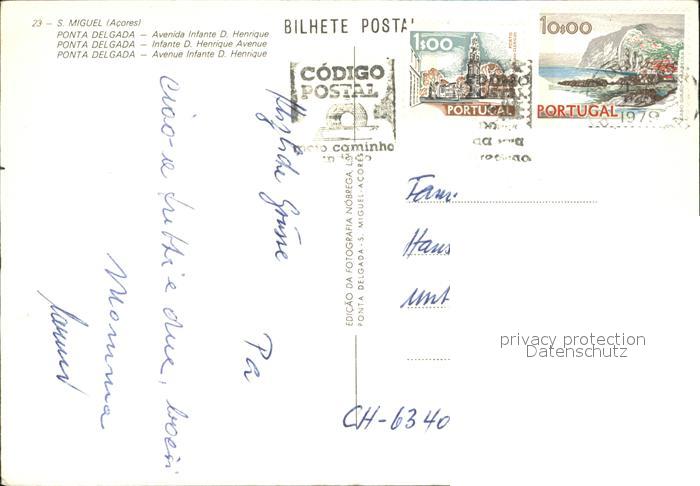 23 – S. MIGUEL (Açores)
PONTA DELGADA – Avenida Infante D. Henrique
PONTA DELGADA – Infante D. Henrique Avenue
PONTA DELGADA – Avenue Infante D. Henrique
BILHETE POSTAL
1$00
PORTUGAL
10$00
PORTUGAL
1979
CÓDIGO
POSTAL
meio caminho
Herzliche Grüsse
Pa
ciao a tutti e due, bacin
Mamma
EDIÇÃO DA FOTOGRAFIA NÓBREGA, L
PONTA DELGADA - S. MIGUEL - AÇORES
Fam.
Hans
Unt
CH-6340
privacy protection
Datenschutz